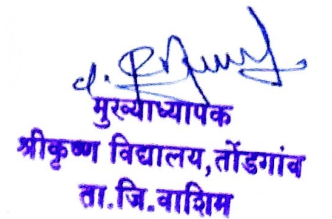 मुख्याध्यापक
श्रीकृष्ण विद्यालय,तोंडगांव
ता.जि.वाशिम